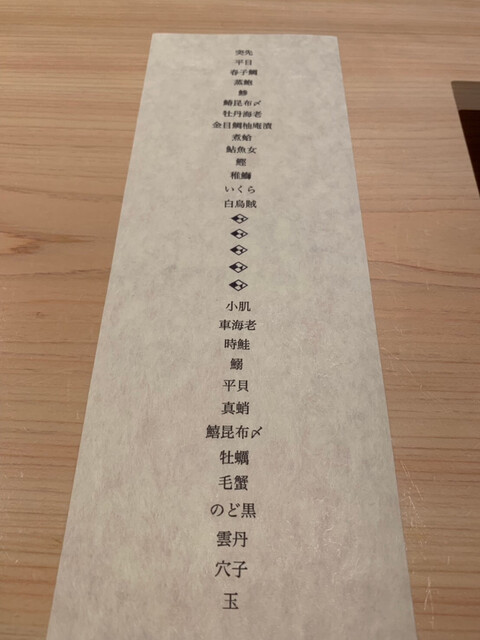 突先
平目
春子鯛
蒸鮑
鯵
鰆昆布〆
牡丹海老
金目鯛柚庵漬
煮蛤
鮎魚女
鰹
稚鰤
いくら
白烏賊
小肌
車海老
時鮭
鰯
平貝
真蛸
鱚昆布〆
牡蠣
毛蟹
のど黒
雲丹
穴子
玉